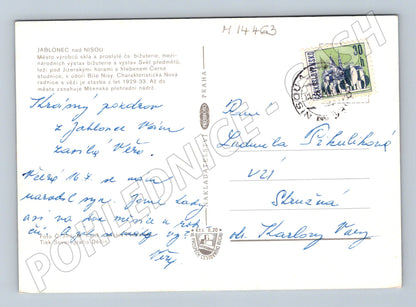 M 14463
JABLONEC nad NISOU
Město výrobců skla a proslulé čs. bižuterie, mezi-
národních výstav bižuterie a výstav Svět předmětů,
leží pod Jizerskými horami a hřebenem Černá
studnice, v údolí Bílé Nisy. Charakteristická Nová
radnice a věží je stavba z let 1929-33. Až do
města zasahuje Mšenská přehradní nádrž.
Krásný pozdrav
z Jablonce Vám
zasílá Věra.
Včera 16.7. se nám
narodil syn. Jsme tady
asi na dva měsíce a
Věra
Foto
Tisk
NAKLADATELSTVÍ
PRAHA
ČESKOSLOVENSKO
30
NISOU
Paní
Ludmila
VZÍ
Stružná
ok. Karlovy Vary
POHLEDNICE - CZECH